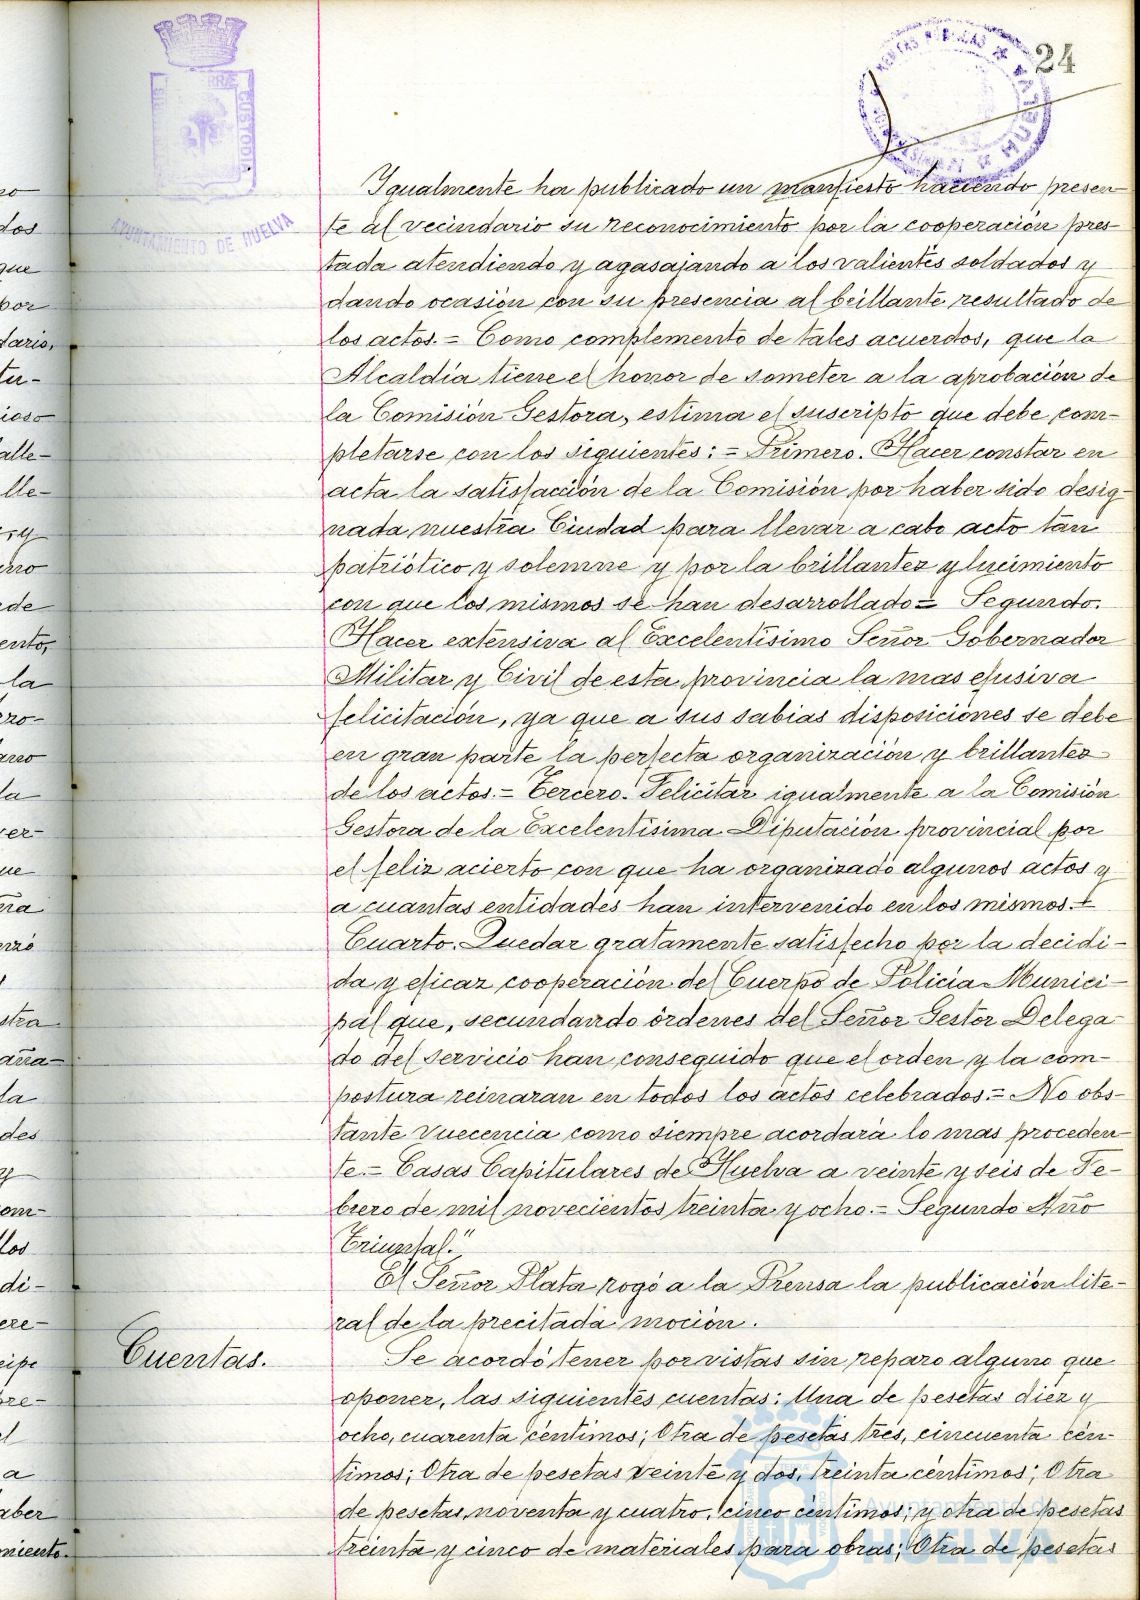 24
AYUNTAMIENTO DE HUELVA
Igualmente ha publicado un manfiesto haciendo presen-
te al vecindario su reconocimiento por la cooperación pres-
tada atendiendo y agasajando a los valientes soldados y
dando ocasión con su presencia al brillante resultado de
los actos.= Como complemento de tales acuerdos, que la
Alcaldía tiene el honor de someter a la aprobación de
la Comisión Gestora, estima el suscripto que debe com-
pletarse con los siguientes: = Primero. Hacer constar en
acta la satisfacción de la Comisión por haber sido desig-
nada nuestra Ciudad para llevar a cabo acto tan
patriótico y solemne y por la brillantez y lucimiento
con que los mismos se han desarrollado = Segundo.
Hacer extensiva al Excelentísimo Señor Gobernador
Militar y Civil de esta provincia la mas efusiva
felicitación, ya que a sus sabias disposiciones se debe
en gran parte la perfecta organización y brillantez
de los actos.= Tercero. Felicitar igualmente a la Comisión
Gestora de la Excelentísima Diputación provincial por
el feliz acierto con que ha organizado algunos actos y
a cuantas entidades han intervenido en los mismos.=
Cuarto. Quedar gratamente satisfecho por la decidi-
da y eficaz cooperación del Cuerpo de Policía Munici-
pal que, secundando órdenes del Señor Gestor Delega-
do del servicio han conseguido que el orden y la com-
postura reinaran en todos los actos celebrados.= No obs-
tante Vuecencia como siempre acordará lo mas proceden-
te.= Casas Capitulares de Huelva a veinte y seis de Fe-
brero de mil novecientos treinta y ocho.= Segundo Año
Triunfal."
El Señor Plata rogó a la Prensa la publicación lite-
ral de la precitada moción.
Cuentas.
Se acordó tener por vistas sin reparo alguno que
oponer, las siguientes cuentas: Una de pesetas diez y
ocho, cuarenta céntimos; Otra de pesetas tres, cincuenta cén-
timos; Otra de pesetas veinte y dos, treinta céntimos; Otra
de pesetas noventa y cuatro, cinco céntimos; y otra de pesetas
treinta y cinco de materiales para obras; Otra de pesetas
Ayuntamiento de
HUELVA